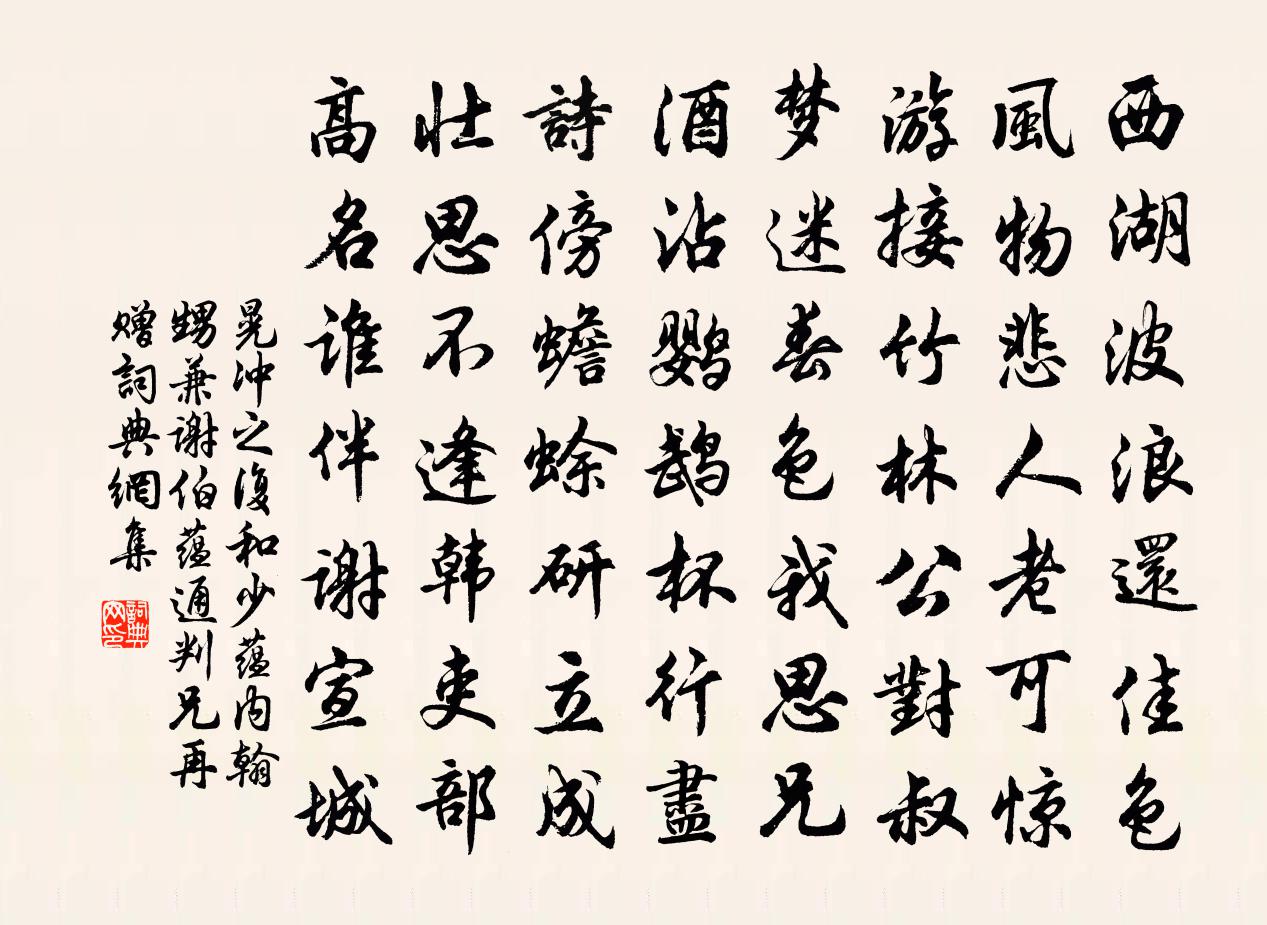 西湖波浪還佳色
風物悲人老可惊
游接竹林公對叔
梦迷春色我思兄
酒沾鸚鵡杯行盡
詩傍蟾蜍研立成
壮思不逢韩吏部
高名谁伴謝宣城
晃沖之復和少蕴内翰
甥兼谢伯蕴通判兄再
赠詞典網集
詞典网印